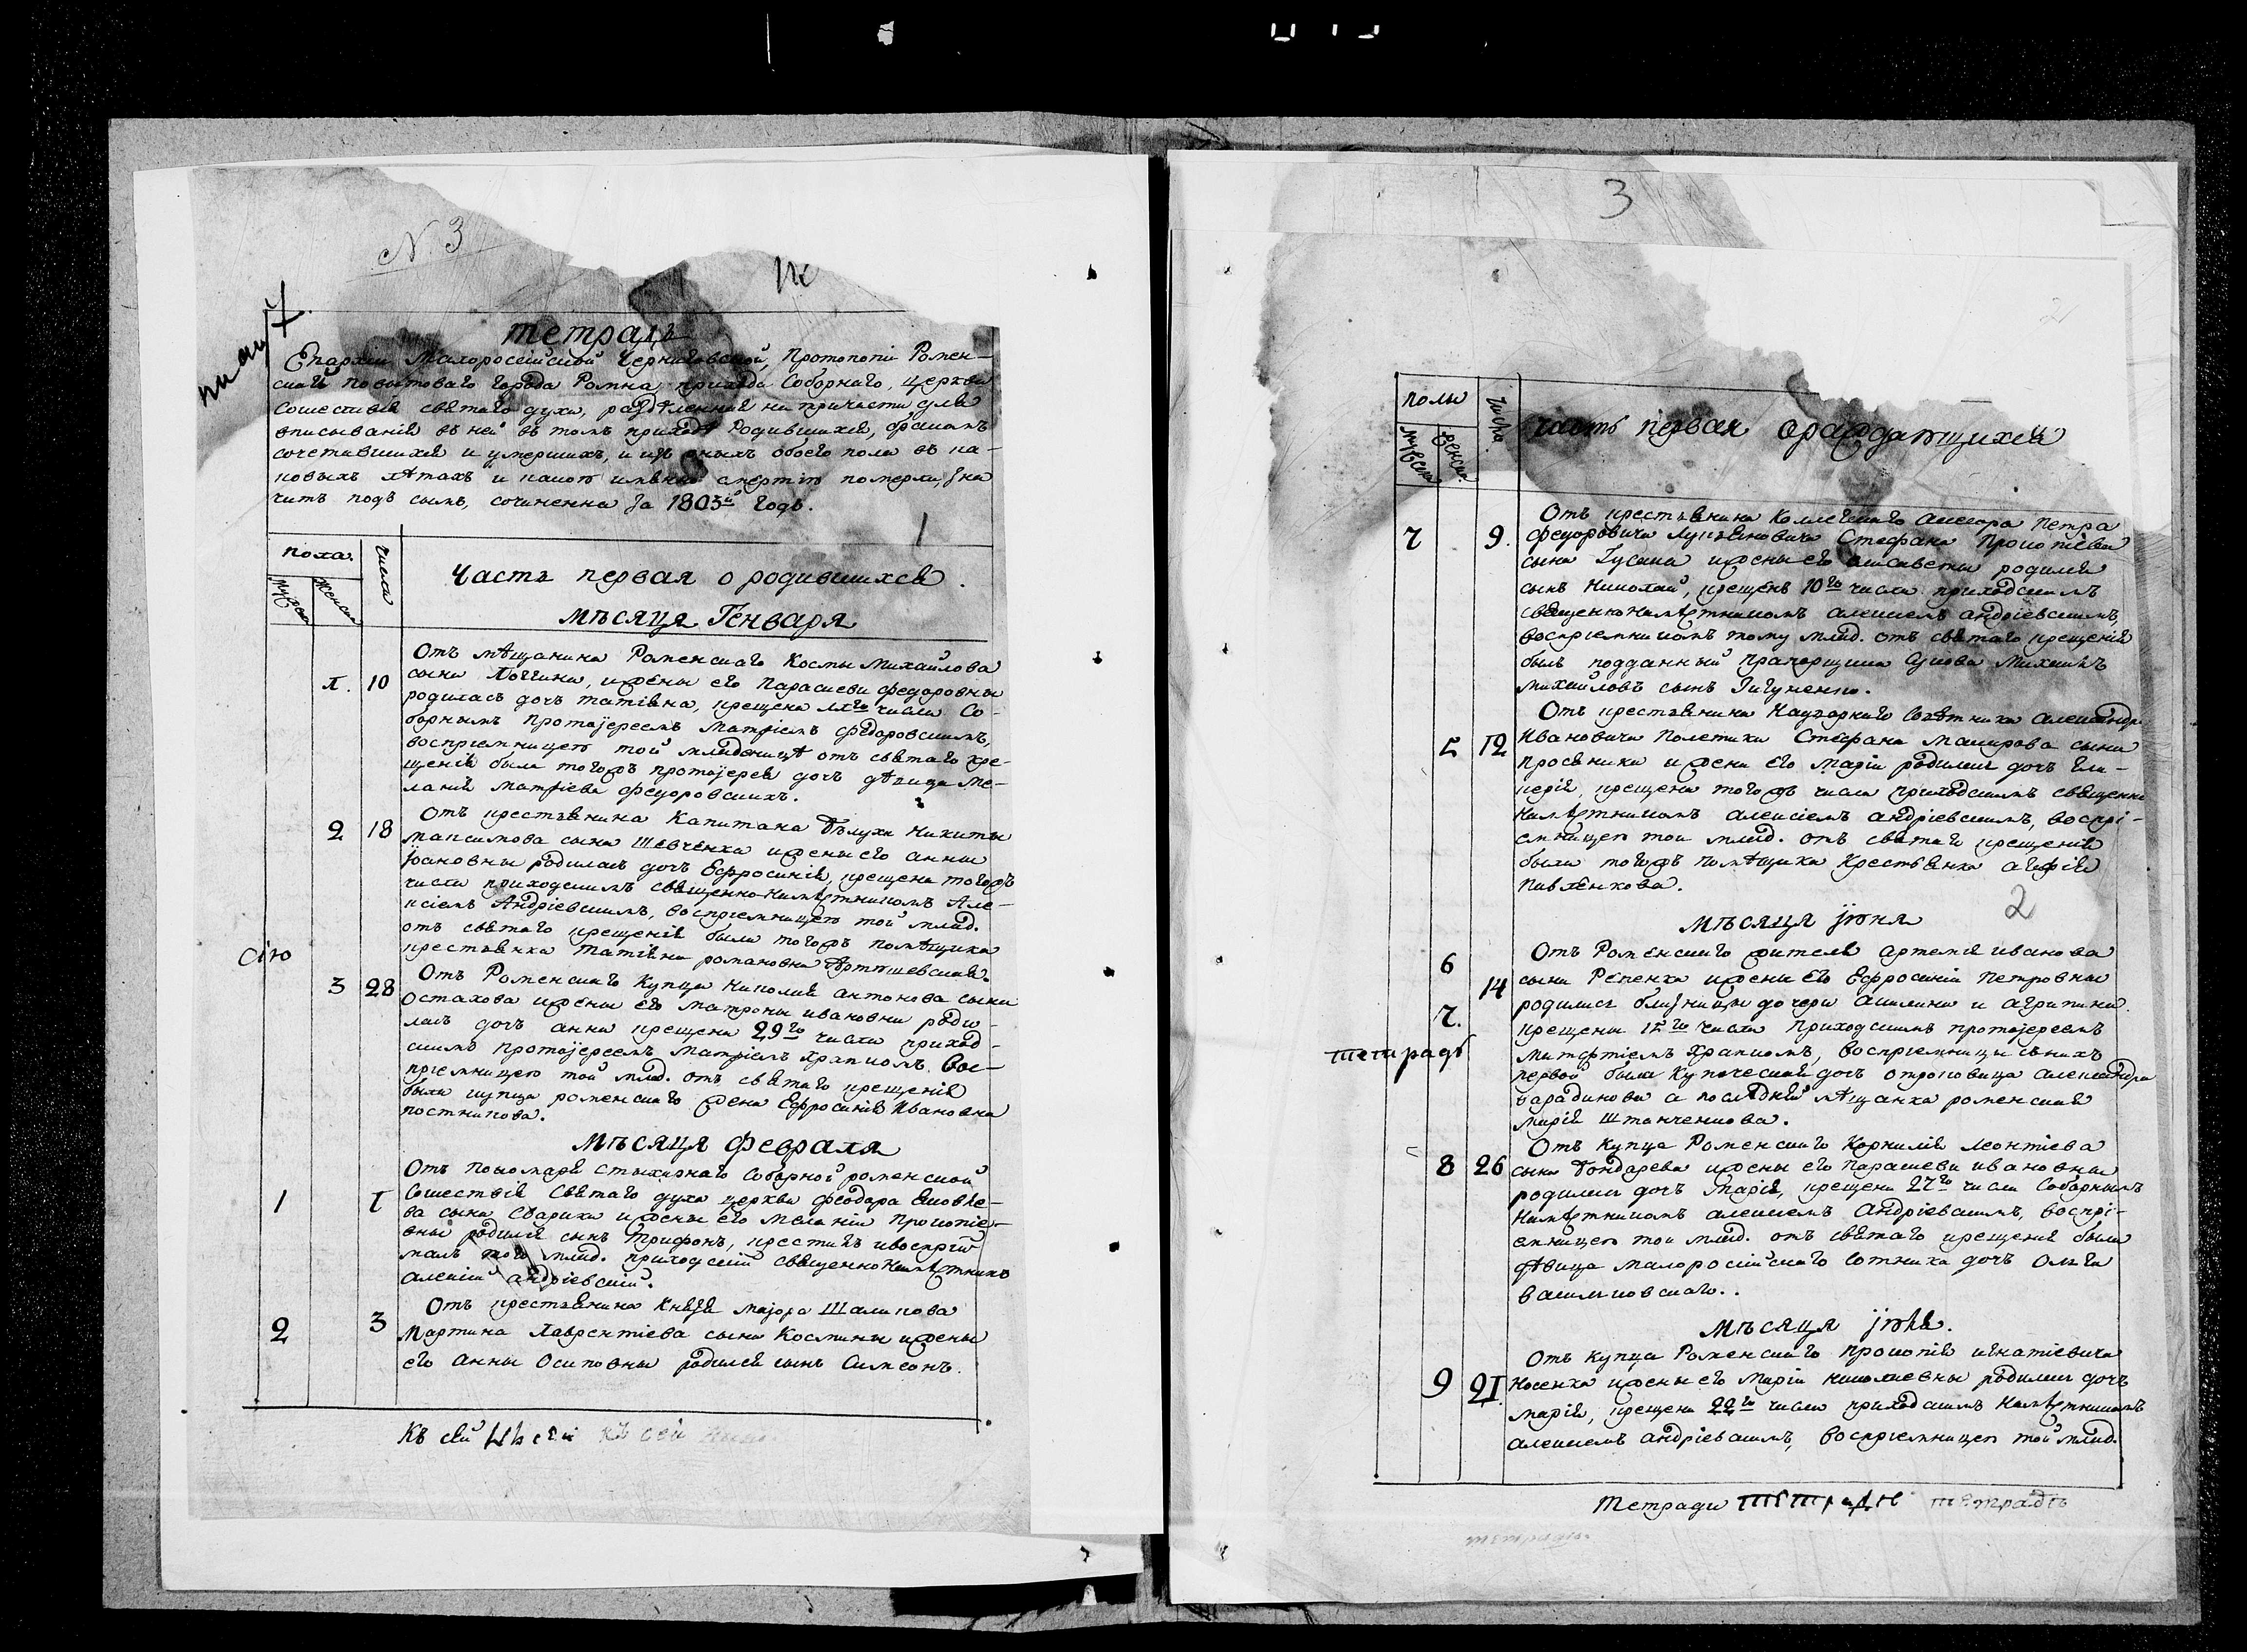 N. 3
тетрадь
Епархіи Малоросійской Черниговской, Протопопіи Ромен-
скаго повѣтоваго города Ромна, прихода Соборнаго, церкви
Сошествія святаго духа, раздѣленная на три части для
вписыванія въ ней въ томъ приходѣ Родившихся, бракомъ
сочетавшихся и умершихъ, и изъ оныхъ обоего пола въ ка-
ковыхъ лѣтахъ и какою имянно смертію померли, зна-
читъ подъ симъ, сочиненна за 1803й годъ.
1
пола числа
Мужска Женска
Часть первая о родившихся.
мѣсяца Генваря
Отъ мѣщанина Роменскаго Космы Михайлова
10 сына, и жены его Параскеви федоровны
родилась дочь татіана, крещена числа Со-
борнымъ протоіереемъ федоровскимъ,
воспріемницею той младеницѣ отъ святаго кре-
щенія была тогожъ протоіерея дочь дѣвица Ме-
ланія федоровскихъ.
Отъ крестьянина Капитана Бѣлухи Никиты
2 18 Максимова сына Шевченка и жены его анны
іоановны родилась дочь Ефросинія, крещена тогожъ
числа приходскимъ священно-намѣстникомъ Але-
ксіемъ Андріевскимъ, воспріемницею той млад.
отъ святаго крещенія была тогожъ помѣщика
крестьянка татіана романовна
Отъ Роменскаго Купца Николая антонова сына
3 28 Остахова и жены его матроны ивановны роди-
лась дочь анна крещена 29го числа приход-
скимъ протоіереемъ храпкомъ вос-
пріемницею той млад. отъ святаго крещенія
была купца роменскаго жена Ефросинія Ивановна
постникова.
Мѣсяца февраля
Отъ пономаря стихарнаго Соборной роменской
1 Сошествія Святаго духа церкви феодора Яковле-
ва сына Сварика и жены его меланіи прокопіе-
вны родился сынъ Трифонъ, крестилъ и воспріи-
малъ того млад. приходскій священно намѣстникъ
алексій андріевскій.
Отъ крестьянина Князя маіора Шаликова
2 3 Мартина Лаврентіева сына Космины и жены
его анны Осиповны родился сынъ Симеонъ.
Къ сей
3
полы числа
мужска женска
часть первая о раждающихся
Отъ крестьянина Коллежскаго асессора петра
9. федоровича Лукьяновича Стефана прокопіева
сына Гусака и жены его елисаветы родился
сынъ Николай, крещенъ 10го числа приходскимъ
священнонамѣстникомъ алексіемъ андріевскимъ,
воспріемникомъ тому млад. отъ святаго крещенія
былъ подданный прапорщика Михаилъ
михайловъ сынъ
Отъ крестьянина Надворнаго Совѣтника александра
12 Ивановича полетики Стефана макарова сына
просяника и жены его маріи родилась дочь Гли-
керія, крещена тогожъ числа приходскимъ священно
намѣстникомъ алексіемъ андріевскимъ, воспрі-
емницею той млад. отъ святаго крещенія
была тогожъ помѣщика Крестьянка агафія
павленкова.
2
мѣсяца іюня
Отъ Роменскаго жителя артемія иванова
6 14 сына Репенка и жены его Ефросиніи петровны
родились близницы дочери акилина и агрипина.
крещены числа приходскимъ протоіереемъ
храпкомъ, воспріемницы ихъ
первой была Купеческая дочь отроковица александра
а послѣдней мѣщанка роменская
марія
тетрадь
Отъ Купца Роменскаго Корнилія леонтіева
8 26 сына Бондарева и жены его параскеви ивановны
родилась дочь марія, крещена 27го числа Соборнымъ
намѣстникомъ алексіемъ андріевскимъ, воспрі-
емницею той млад. отъ святаго крещенія была
дѣвица малоросійскаго сотника дочь Ольга
Мѣсяца іюля.
Отъ Купца Роменскаго прокопія игнатіевича
9 21. Носенка и жены его маріи николаевны родилась дочь
марія, крещена 22го числа приходскимъ намѣстникомъ
алексіемъ андріевскимъ, воспріемницею той млад.
тетради тетради тетрадь